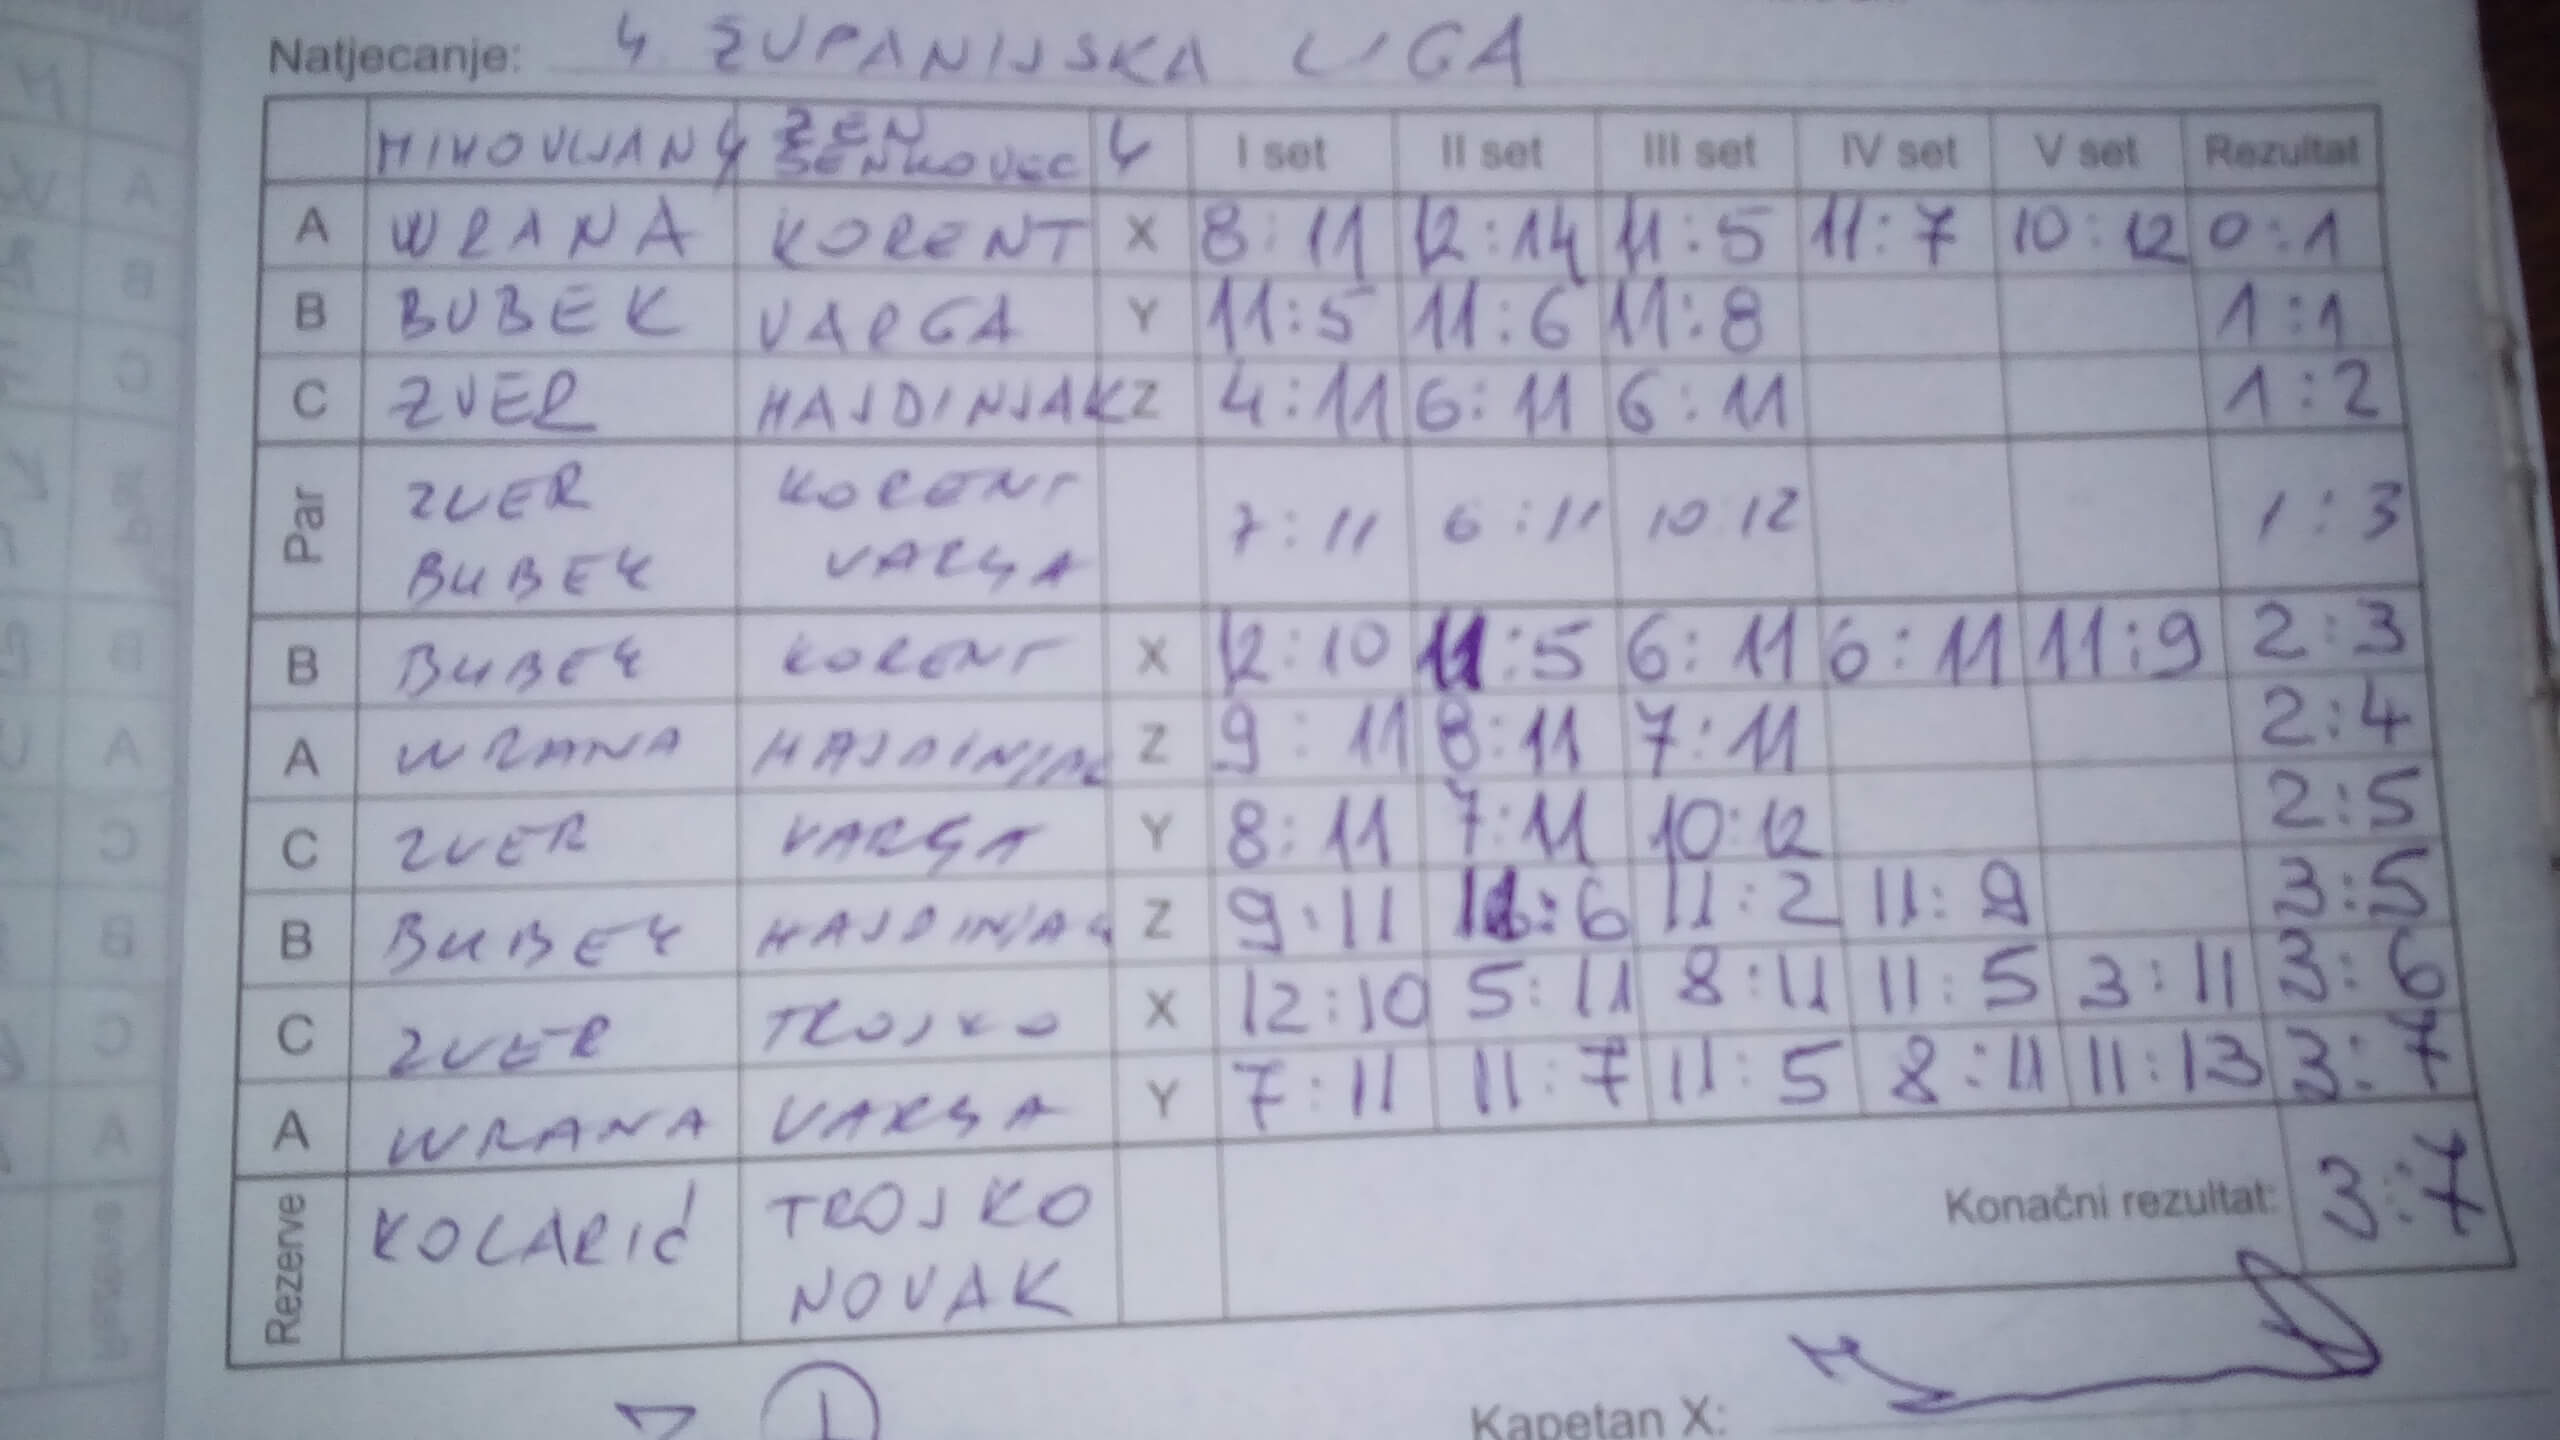 Natjecanje: 4 ŽUPANIJSKA LIGA
MIHOVLJAN 4 ŽEN ŠENKOVEC 4 I set II set III set IV set V set Rezultat
A WRANA KORENT X 8:11 12:14 11:5 11:7 10:12 0:1
B BUBEK VARGA Y 11:5 11:6 11:8 1:1
C ZVER HAJDINJAK Z 4:11 6:11 6:11 1:2
Par ZVER KORENT 7:11 6:11 10:12 1:3
BUBEK VARGA
B BUBEK KORENT X 12:10 11:5 6:11 6:11 11:9 2:3
A WRANA HAJDINJAK Z 9:11 8:11 7:11 2:4
C ZVER VARGA Y 8:11 7:11 10:12 2:5
B BUBEK HAJDINJAK Z 9:11 11:6 11:2 11:9 3:5
C ZVER TROJKO X 12:10 5:11 8:11 11:5 3:11 3:6
A WRANA VARGA Y 7:11 11:7 11:5 8:11 11:13 3:7
Rezerve KOLARIĆ TROJKO
NOVAK
Konačni rezultat: 3:7
Kapetan X: